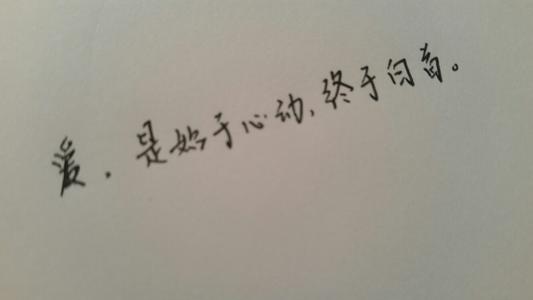 爱，是始于心动，终于白首。